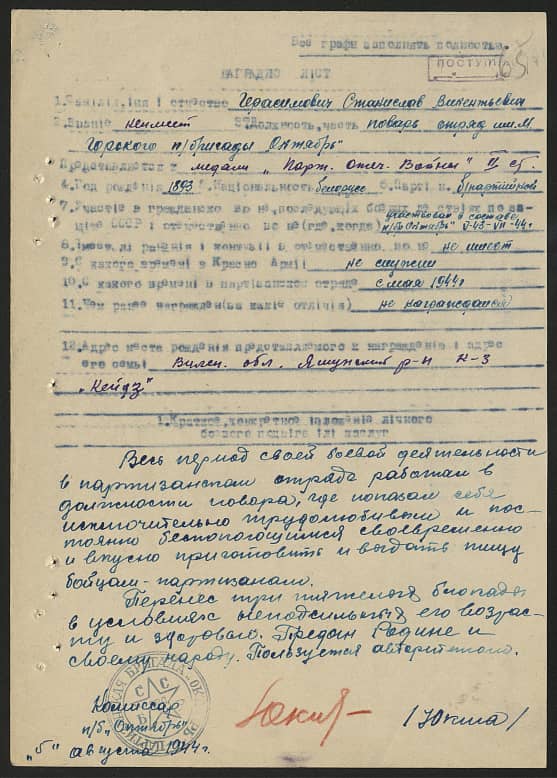 Все графы заполнять полностью.
ПОСТУП
65
НАГРАДНО ЛІСТ
1. Фамілія, імя і отчество Герасимович Станислав Викентьевич
2. Звание не имеет 3. Должность, часть повар отряд им.
Горского п/бригады Октябрь"
Представляется к медали „Парт. отеч. Войны" II ст.
4. Год рождения 1893 5. Національность белорус 6. Парті б/партийный
7. Участие в гражданско во не, последующіх боевых де ствіях по за-
щіте СССР і отечественно во не (где, когда) участвовал в составе
п/бр Октябрь" V-43-VII-44г.
8. Імеет лі раненія і контузіі в отечественно во не не имеет
9. С какого времені в Красно Арміі не служил
10. С какого времені в партізанском отряде с мая 1944г
11. Чем ранее награжден (за какіе отлічія) не награждался
12. Адрес места рожденія представляемого к награжденію і адрес
его семьі Вилен. обл. Яшунский р-н х-з
„Кейдз"
1. Краткое, конкретное ізложеніе лічного
боевого подвіга ілі заслуг
Весь период своей боевой деятельности
в партизанском отряде работал в
должности повара, где показал себя
исключительно трудолюбивым и пос-
тоянно беспокоющимся своевременно
и вкусно приготовить и выдать пищу
бойцам-партизанам.
Перенес три тяжелых блокады
в условиях непосильных его возрас-
ту и здоровью. Предан Родине и
своему народу. Пользуется авторитетом.
Комиссар
п/б „Октябрь"
/Юкша/
„5" августа 1944г.